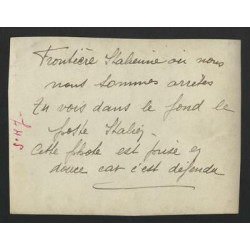 Frontière Italienne où nous
nous sommes arrêtés
tu vois dans le fond le
poste Italien.
Cette photo est prise en
douce car c'est défendu